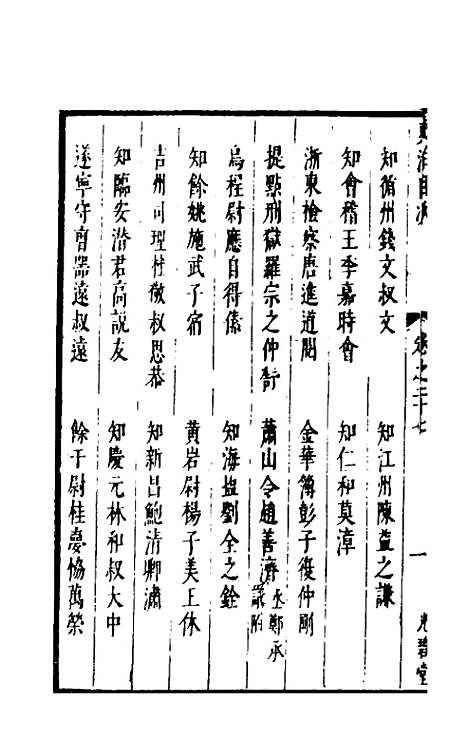 知循州錢文叔文　知江州陳益之謙
知會稽王季嘉時會　知仁和莫漳
浙東檢察唐進道閱　金華簿彭子復仲剛
提點刑獄羅宗之仲舒　蕭山令趙善濟丞鄭承議附
烏程尉應自得傃　知海盐劉全之銓
知餘姚施武子宿　黃岩尉楊子美王休
吉州司理杜徵叔思恭　知新昌鮑清卿潚
知臨安潛君高說友　知慶元林和叔大中
遂寧守曹器遠叔遠　餘干尉桂夢協萬榮
卷之二十七
一